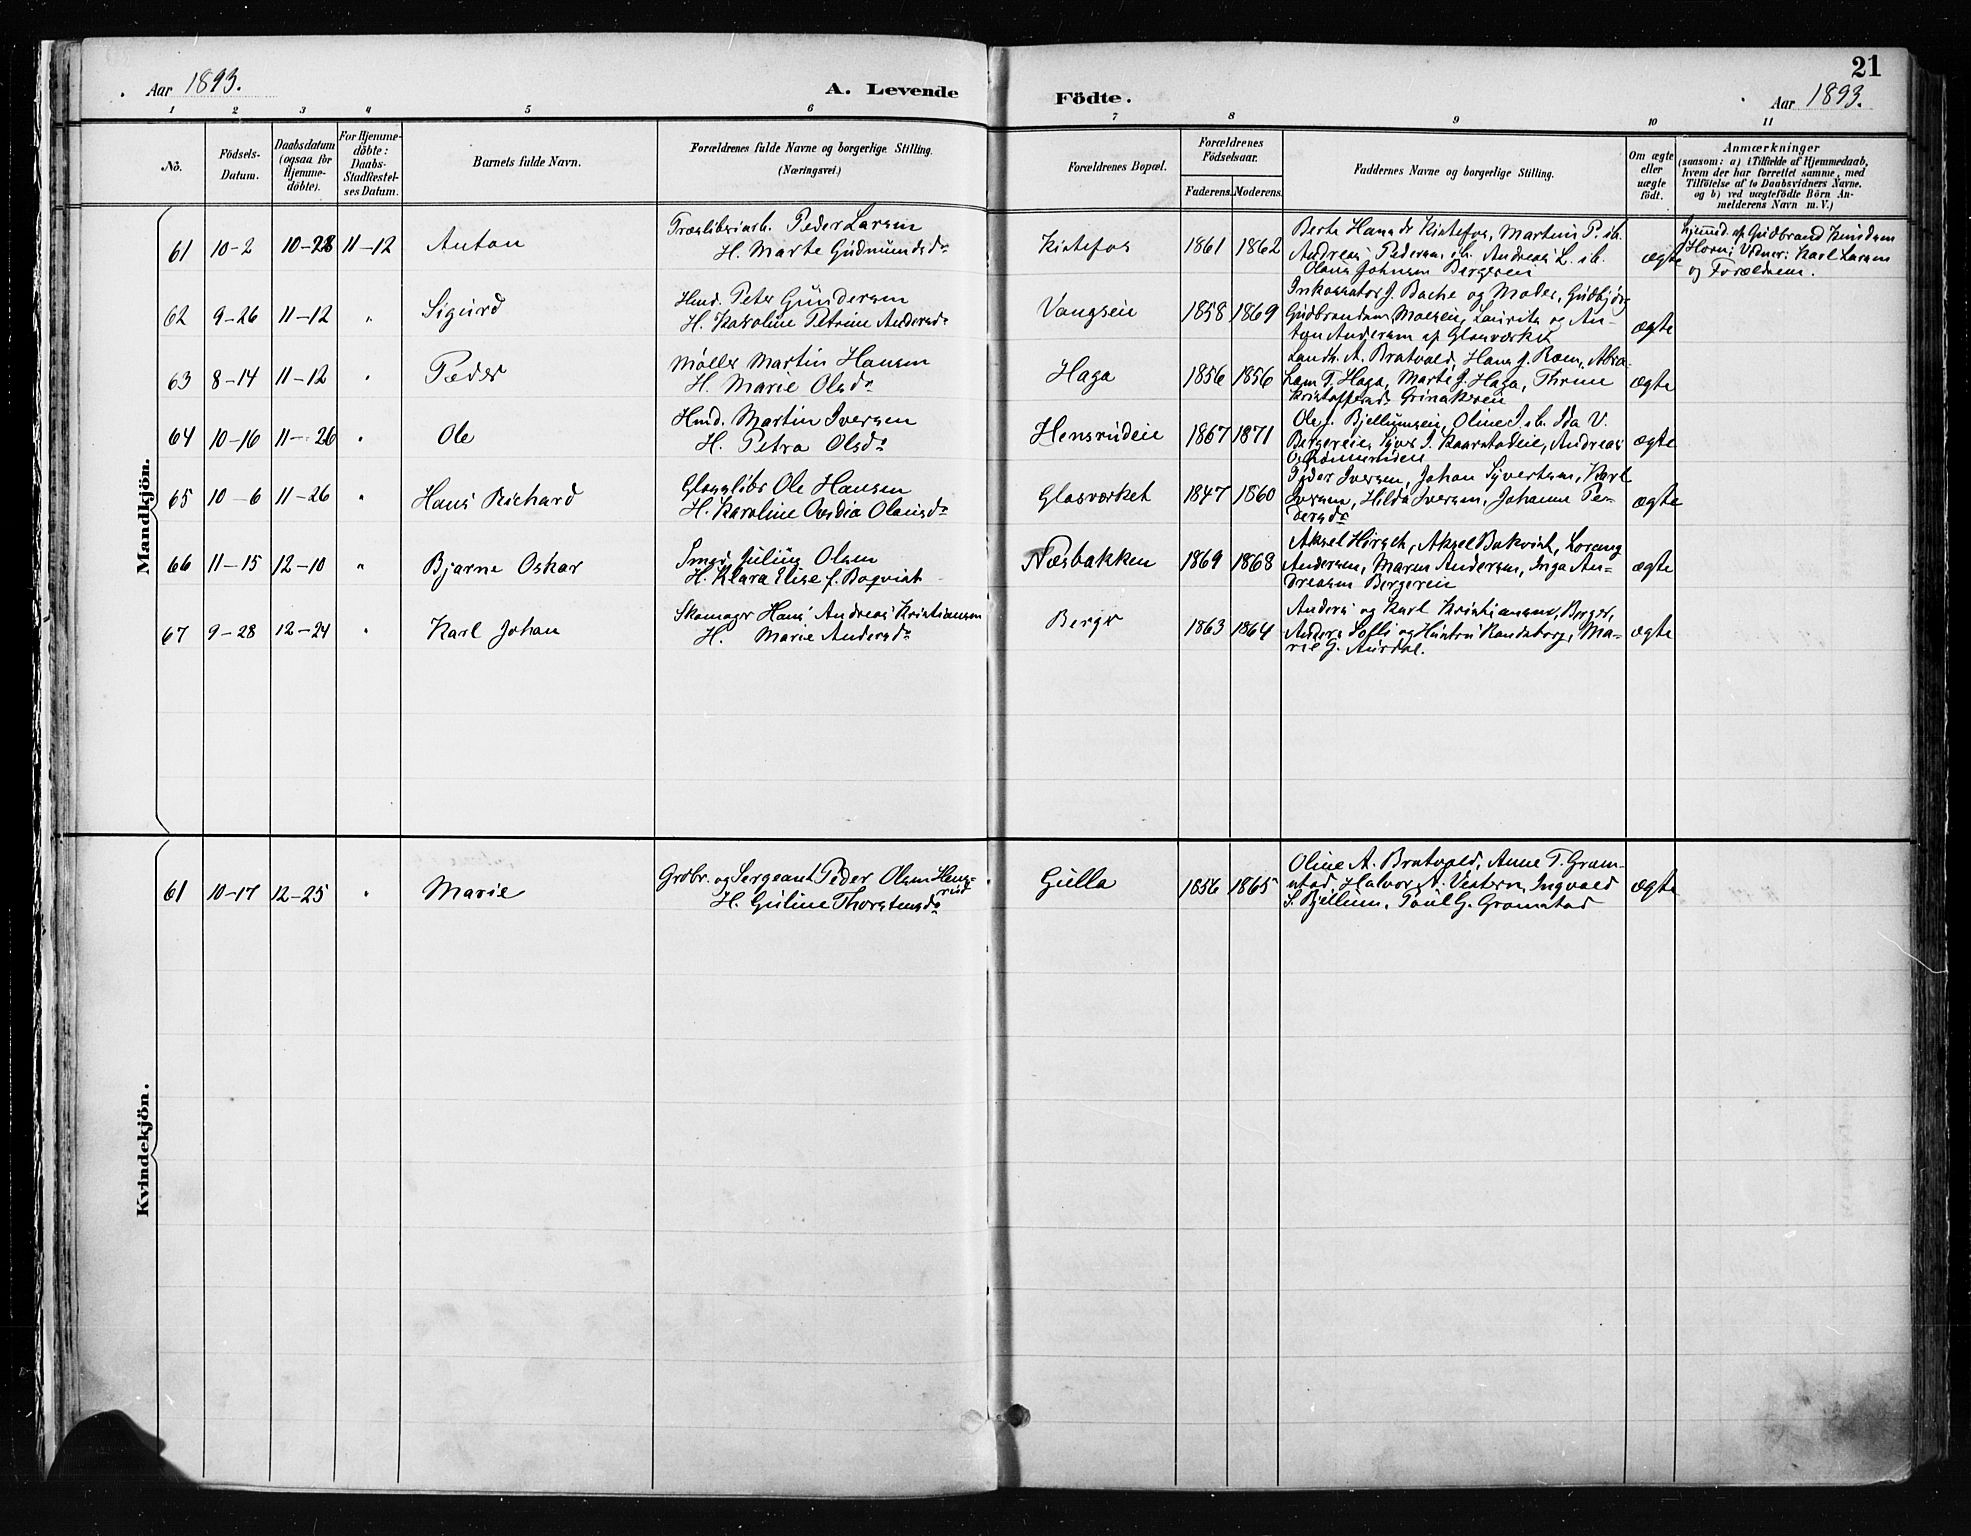 Aar 1893.
A. Levende
Födte.
Aar 1893.
21
1 2 3 4 5 6 7 8 9 10 11
No.
Födsels-
Datum.
Daabsdatum
(ogsaa for
Hjemme-
döbte).
For Hjemme-
döbte:
Daabs-
Stadfæstel-
ses Datum.
Barnets fulde Navn.
Forældrenes fulde Navne og borgerlige Stilling.
(Næringsvei.)
Forældrenes Bopæl.
Forældrenes
Födselsaar.
Faderens. Moderens.
Faddernes Navne og borgerlige Stilling.
Om ægte
eller
uægte
födt.
Anmærkninger
(saasom: a) i Tilfælde af Hjemmedaab,
hvem der har forrettet samme, med
Tilföielse af to Daabsvidners Navne.
og b) ved uægtefödte Börn An-
melderens Navn m. V.)
Mandkjön.
61 10-2 10-28 11-12 Anton
Træsliberiarb. Peder Larsen
H. Marte Gudmundsdr
Kistefos 1861 1862
Berte Hansdr Kistefos, Martin P. ib.
Andreas Pedersen ib. Andreas L. ib.
Olaus Johnsen Bergereie
ægte
Hjemmed. af Gudbrand Knudsen
Horn; Vidner: Karl Larsen
og Forældrene.
62 9-26 11-12 " Sigurd
Hmd. Peter Gundersen
H. Karoline Petrine Andersdr
Vangseie 1858 1869
Inkassator J. Bache og Moder, Gudbjör
Gudbrandsen Moeseie, Laurits og An-
ton Andersen af Glasværket
ægte
63 8-14 11-12 " Peder
Møller Martin Hansen
H. Marie Olsdr
Haga 1856 1856
Landh. A. Bratvold, Hans J. Roen, Abra-
ham T. Haga, Marte J. Haga, Thrine
Kristoffersdr Grinakereie
ægte
64 10-16 11-26 " Ole
Hmd. Martin Iversen
H. Petra Olsdr
Hensrudeie 1867 1871
Ole J. Bjellumseie, Oline I. ib. Ida V.
Bergereie, Syver I. Kaarstadeie, Andreas
ægte
65 10-6 11-26 " Hans Richard
Glassliber Ole Hansen
H. Karoline Ovedia Olausdr
Glasværket 1847 1860
Peder Iversen, Johan Syvertsen, Karl
Iversen, Hilda Iversen, Johanne Pe-
dersdr
ægte
66 11-15 12-10 " Bjarne Oskar
Smed Julius Olsen
H. Klara Elise f. Boqvist
Næsbakken 1869 1868
Aksel Hirsch, Aksel Bokvist, Lorang
Andersen, Maren Andersen, Inga An-
dreasen Bergereie
ægte
67 9-28 12-24 " Karl Johan
Skomager Hans Andreas Kristiansen
H. Marie Andersdr
Berger 1863 1864
Anders og Karl Kristiansen, Berger,
Anders Sofli og Hustru Randsborg, Ma-
rie G. Aurdal.
ægte
Kvindekjön.
61 10-17 12-25 " Marie
Grdbr. og Sergeant Peder Olsen Hens-
rud
H. Guline Thorstensdr
Gulla 1856 1865
Oline A. Bratvold, Anne T. Gram-
stad, Halvor A. Vestern, Ingvald
S. Bjellum, Poul G. Gramstad
ægte